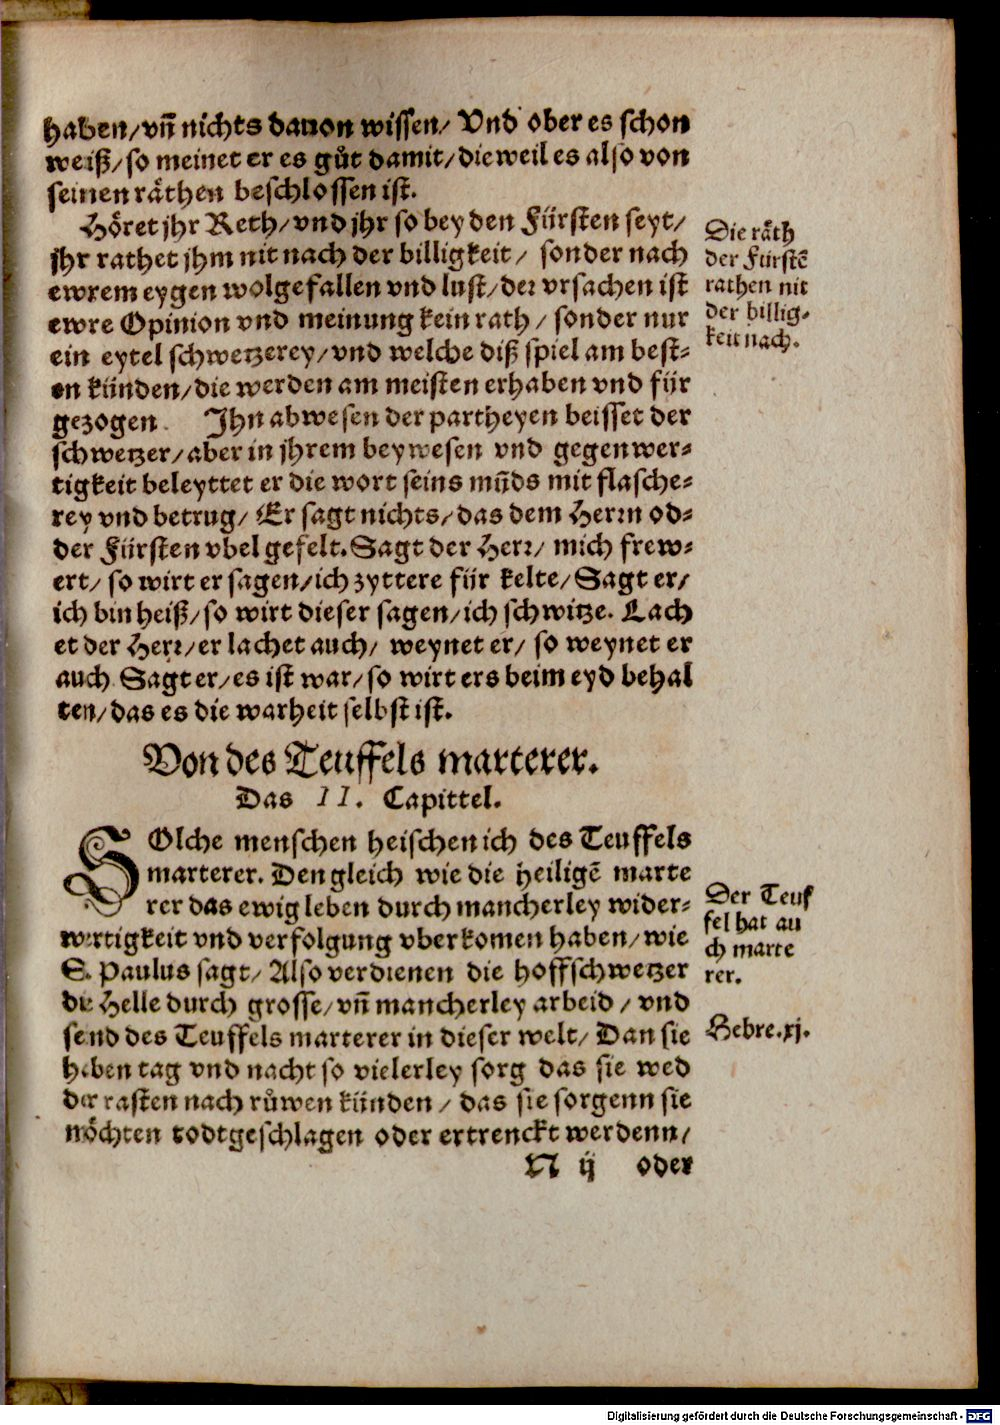 haben/vñ nichts dauon wissen/ Vnd ober es schon
weiß/so meinet er es gůt damit/dieweil es also von
seinen räthen beschlossen ist.
Höret jhr Reth/vnd jhr so bey den Fürsten seyt/
jhr rathet jhm nit nach der billigkeit/ sonder nach
ewrem eygen wolgefallen vnd lust/der vrsachen ist
ewre Opinion vnd meinung kein rath/ sonder nur
ein eytel schwetzerey/vnd welche diß spiel am best-
en künden/die werden am meisten erhaben vnd für
gezogen. Jhn abwesen der partheyen beisset der
schwetzer/aber in jhrem beywesen vnd gegenwer-
tigkeit beleyttet er die wort seins mũds mit flasche-
rey vnd betrug/ Er sagt nichts/das dem Herrn od-
der Fürsten vbel gefelt. Sagt der Herr/ mich frew-
ert/ so wirt er sagen/ich zyttere für kelte/Sagt er/
ich bin heiß/so wirt dieser sagen/ich schwitze. Lach
et der Herr/er lachet auch/ weynet er/ so weynet er
auch Sagt er/es ist war/so wirt ers beim eyd behal
ten/das es die warheit selbst ist.
Die räth
der Fürstẽ
rathen nit
der billig-
keit nach.
Von des Teuffels marterer.
Das 11. Capittel.
SOlche menschen heischen ich des Teuffels
marterer. Den gleich wie die heiligẽ marte
rer das ewig leben durch mancherley wider-
wertigkeit vnd verfolgung vberkomen haben/wie
S. Paulus sagt/ Also verdienen die hoffschwetzer
die Helle durch grosse/vñ mancherley arbeid/vnd
send des Teuffels marterer in dieser welt/ Dan sie
haben tag vnd nacht so vielerley sorg das sie wed
der rasten nach růwen künden/ das sie sorgenn sie
möchten todtgeschlagen oder ertrenckt werdenn/
N ij oder
Der Teuf
fel hat au
ch marte
rer.
Hebre.xj.
Digitalisierung gefördert durch die Deutsche Forschungsgemeinschaft - DFG